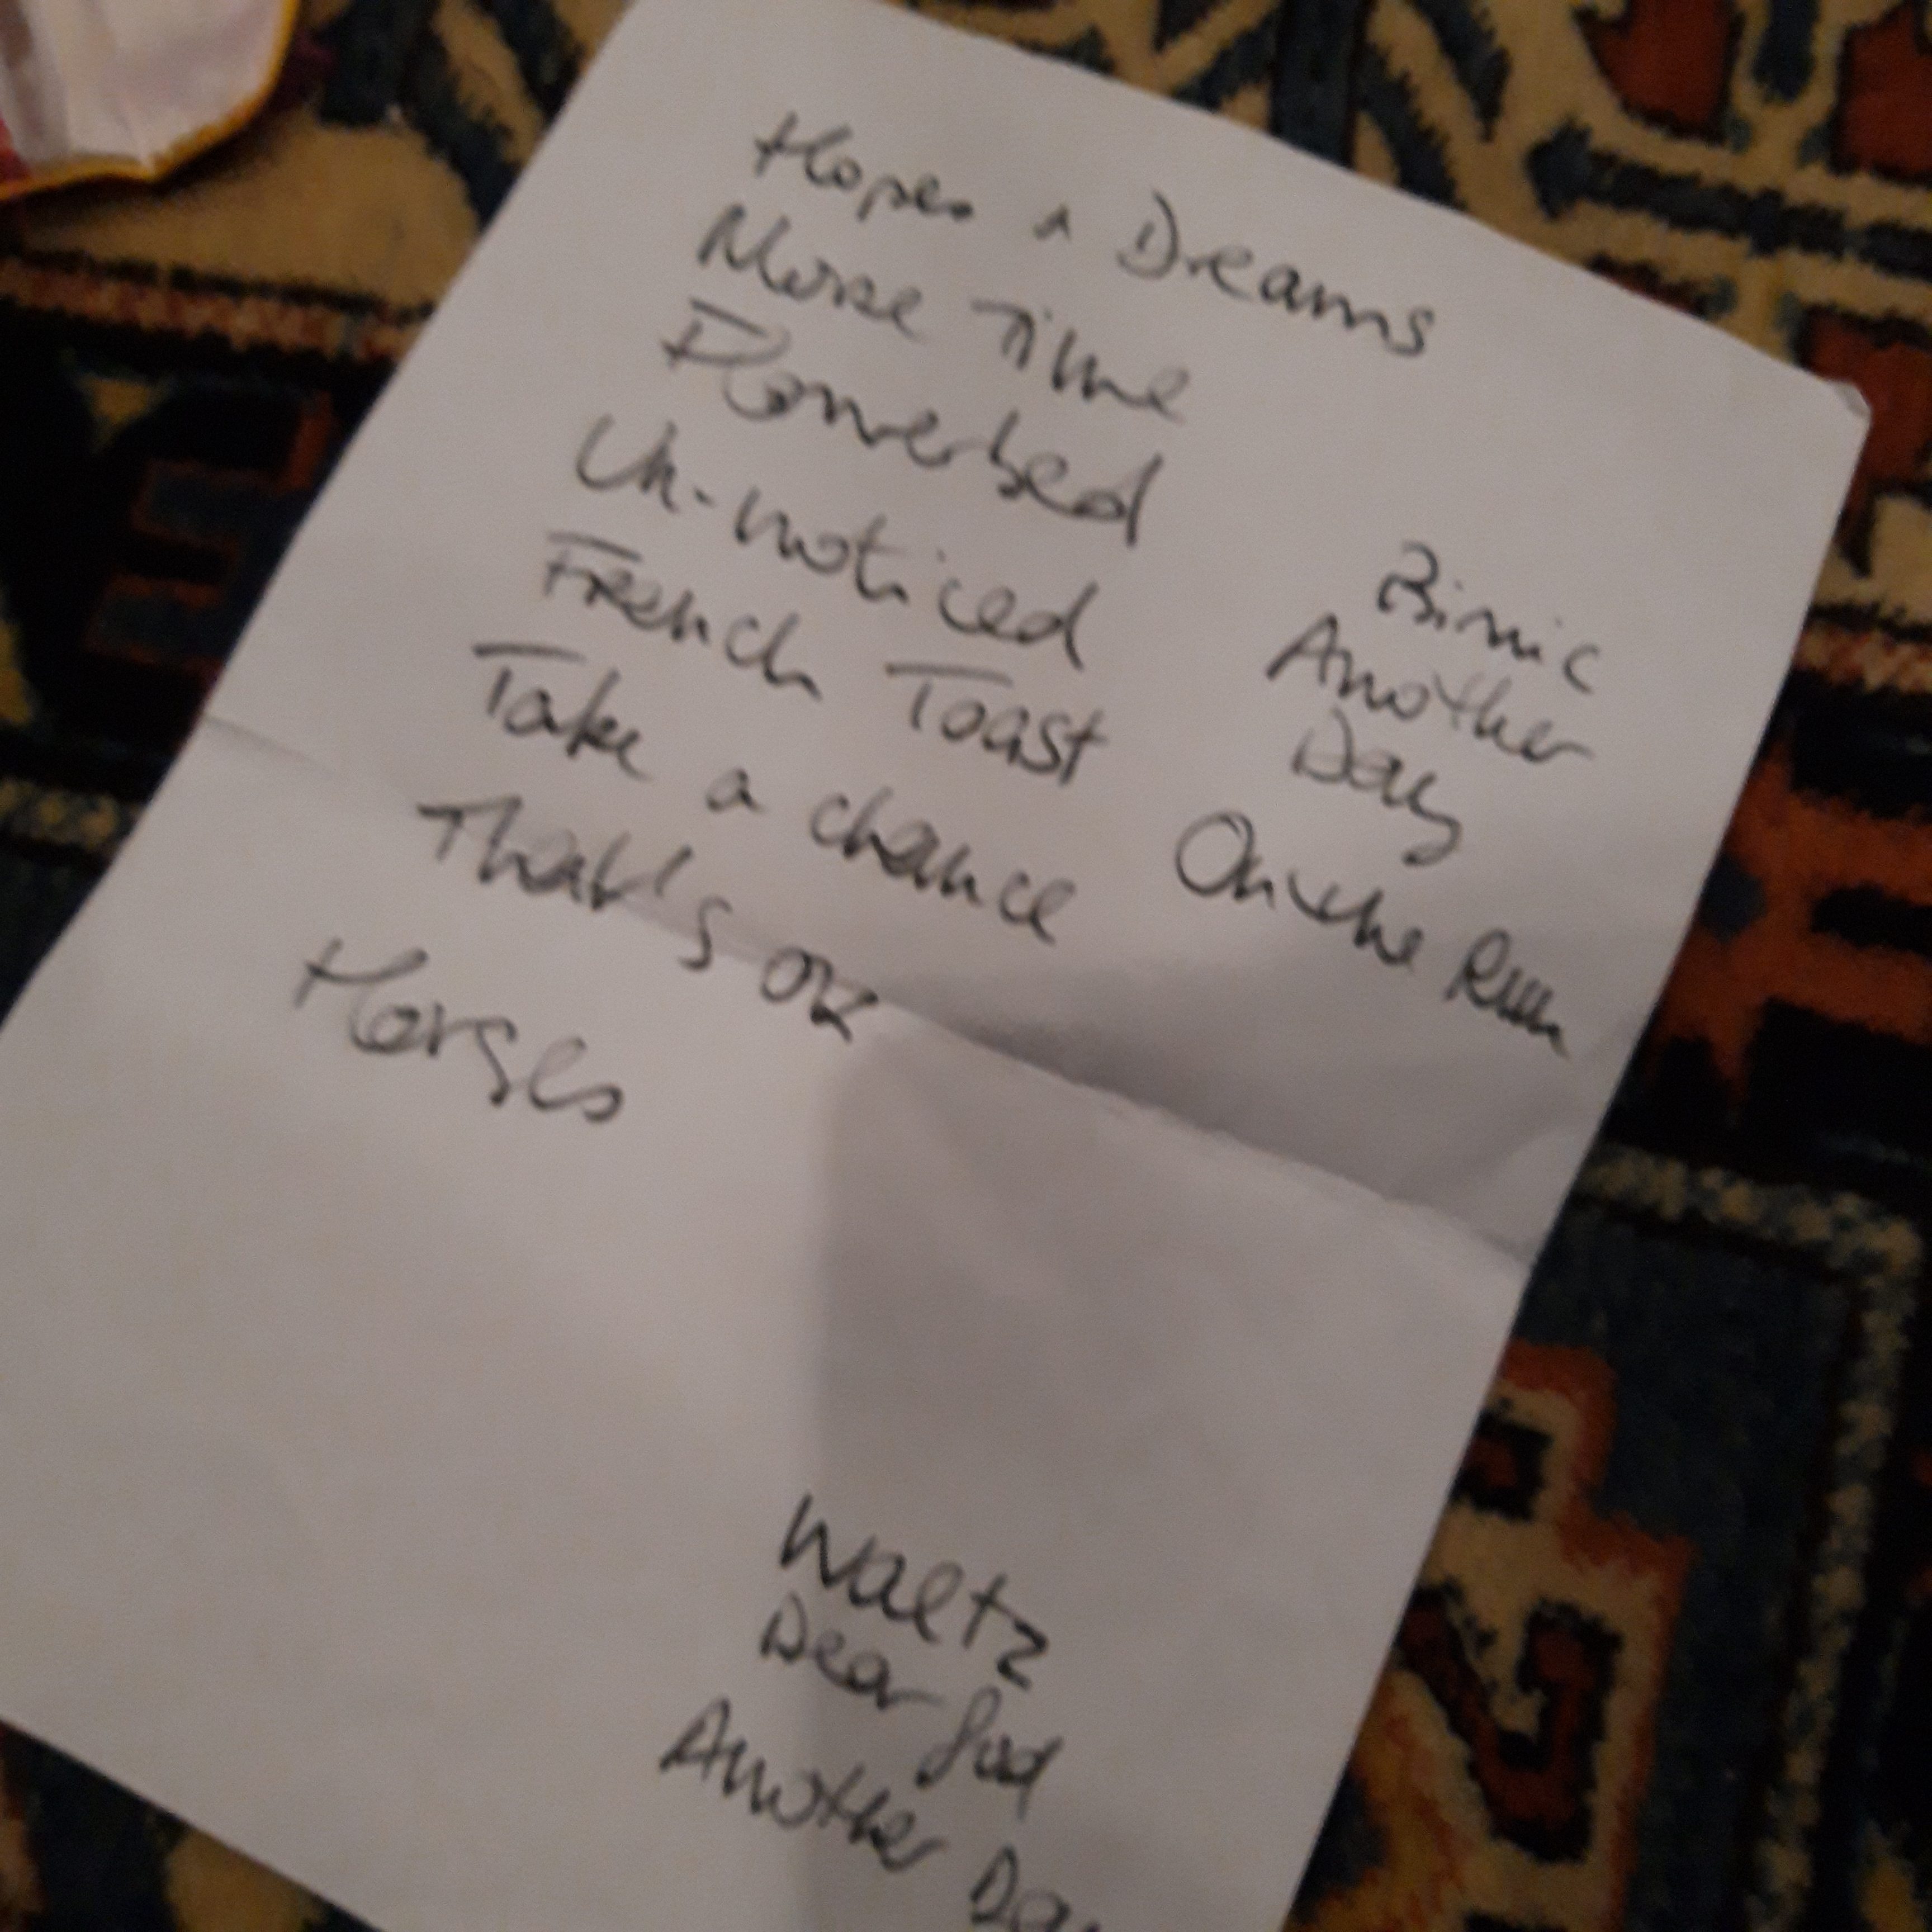 Hopes & Dreams
More Time
Flowerbed
Un-noticed
French Toast
Take a chance
That's OK
Horses
Binic
Another
Day
On the Run
Waltz
Dear God
Another Day